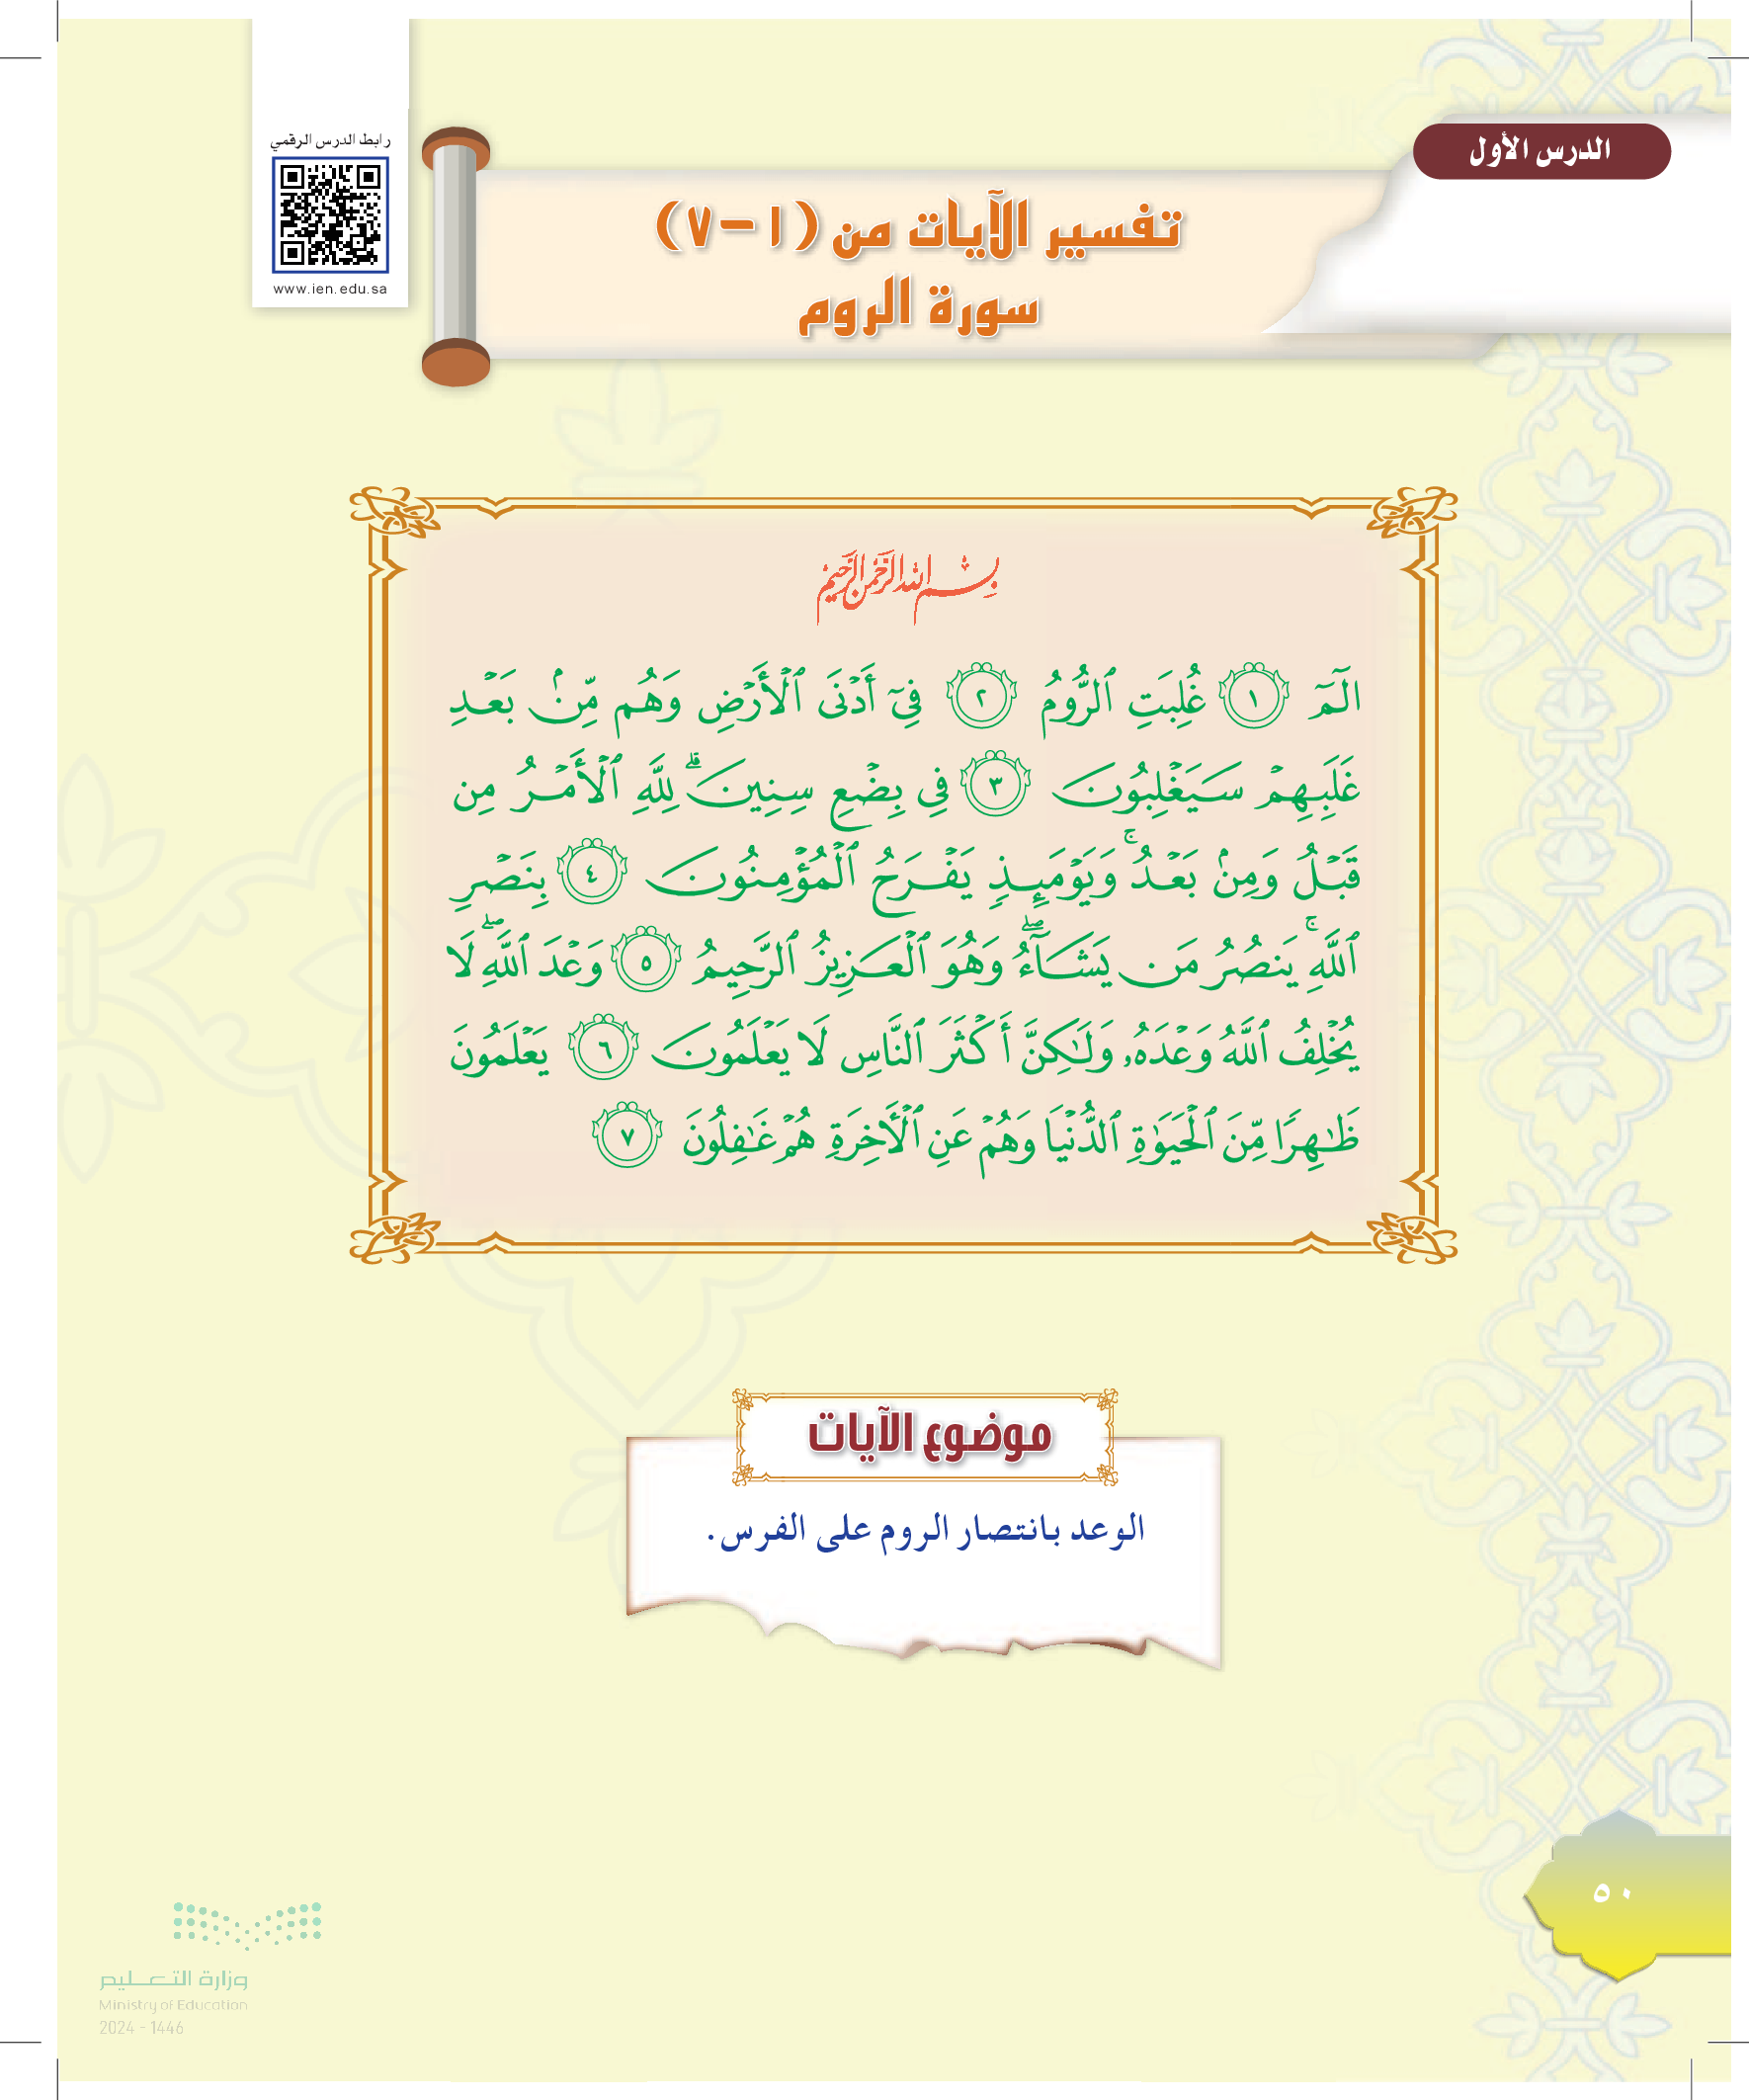 الدرس الأول
رابط الدرس الرقمي
www.ien.edu.sa
تفسير الآيات من (١-٧)
سورة الروم
بِسْمِ اللهِ الرَّحْمَنِ الرَّحِيمِ
الٓمٓ ١ غُلِبَتِ ٱلرُّومُ ٢ فِيٓ أَدۡنَى ٱلۡأَرۡضِ وَهُم مِّنۢ بَعۡدِ
غَلَبِهِمۡ سَيَغۡلِبُونَ ٣ فِي بِضۡعِ سِنِينَۗ لِلَّهِ ٱلۡأَمۡرُ مِن
قَبۡلُ وَمِنۢ بَعۡدُۚ وَيَوۡمَئِذٖ يَفۡرَحُ ٱلۡمُؤۡمِنُونَ ٤ بِنَصۡرِ
ٱللَّهِۚ يَنصُرُ مَن يَشَآءُۖ وَهُوَ ٱلۡعَزِيزُ ٱلرَّحِيمُ ٥ وَعۡدَ ٱللَّهِۖ لَا
يُخۡلِفُ ٱللَّهُ وَعۡدَهُۥ وَلَٰكِنَّ أَكۡثَرَ ٱلنَّاسِ لَا يَعۡلَمُونَ ٦ يَعۡلَمُونَ
ظَٰهِرٗا مِّنَ ٱلۡحَيَوٰةِ ٱلدُّنۡيَا وَهُمۡ عَنِ ٱلۡأٓخِرَةِ هُمۡ غَٰفِلُونَ ٧
موضوع الآيات
الوعد بانتصار الروم على الفرس.
٥٠
وزارة التعليم
Ministry of Education
2024 - 1446